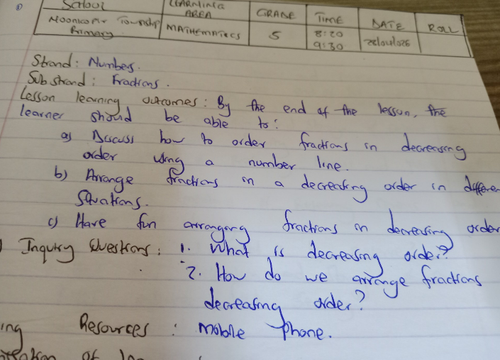 School LEARNING AREA GRADE TIME DATE ROLL
Township Primary MATHEMATICS 5 8:20 9:30
Strand: Numbers.
Substrand: Fractions.
Lesson learning outcomes: By the end of the lesson, the
learner should be able to:
a) Discuss how to order fractions in decreasing
order using a number line.
b) Arrange fractions in a decreasing order in
situations.
c) Have fun arranging fractions in decreasing order
Inquiry Questions: 1. What is decreasing order?
2. How do we arrange fractions
decreasing order?
Resources: mobile phone.